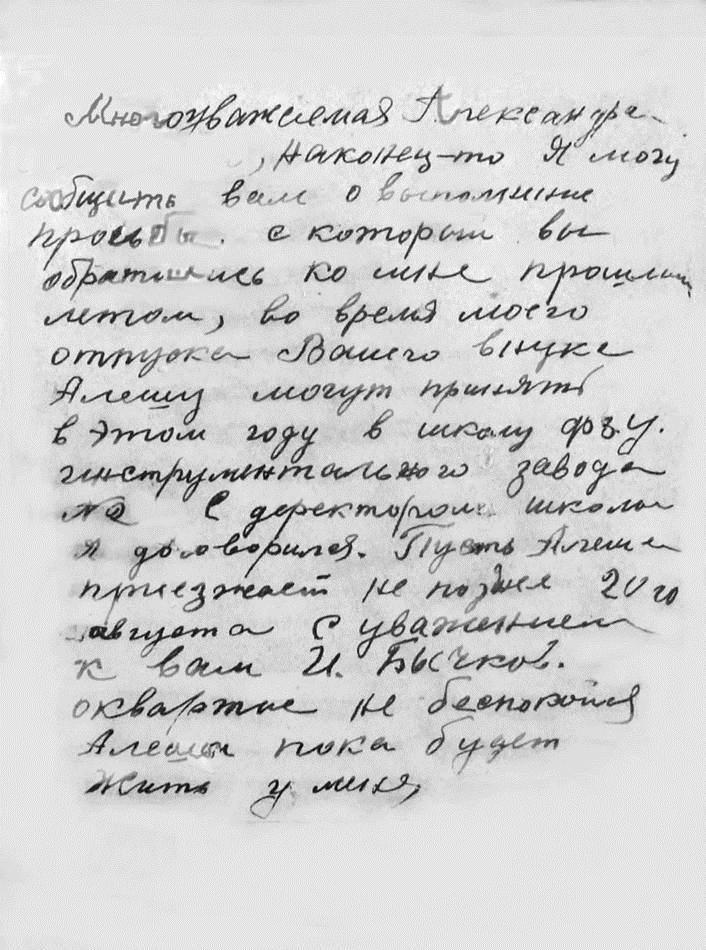 Многоуважаемая Александра
, наконец-то Я могу
сообщить вам о выполнение
просьбы. с которой вы
обратились ко мне прошлым
летом, во время моего
отпуска Вашего внука
Алешу могут принять
в этом году в школу фзу.
инструментального завода
С деректором школы
я договорился. Пусть Алеша
приезжает не позднее 20го
августа С уважением
к вам И. Бычков.
о квартире не беспокойся
Алеша пока будет
жить у меня,